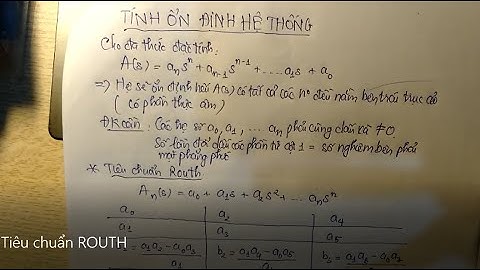 TÍNH ỔN ĐỊNH HỆ THỐNG
Cho đa thức đặc tính:
A(s) = aₙsⁿ + aₙ₋₁sⁿ⁻¹ + .... a₁s + a₀
=> Hệ sẽ ổn định nếu A(s) có tất cả các nº đều nằm bên trái trục ảo
( có phần thực âm)
ĐK cần: Các hệ số a₀, a₁, ... aₙ phải cùng dấu và ≠ 0
Số lần đổi dấu các phần tử cột 1 = số nghiệm bên phải
mặt phẳng phức
* Tiêu chuẩn Routh
Aₙ(s) = a₀ + a₁s + a₂s² + ... aₙsⁿ
a₀ a₂ a₄
a₁ a₃ a₅
= a₁a₂ - a₀a₃ / a₁ b₂ = a₁a₄ - a₀a₅ / a₁
Tiêu chuẩn ROUTH